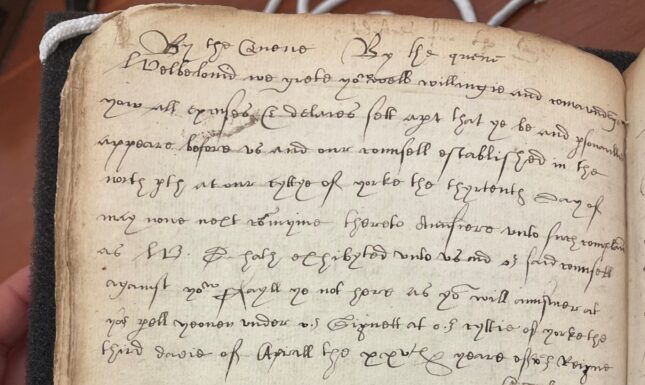 By the Quene By the quene
Welbelovid we grete yow well willingie and comaundinge
yow all excuses & delaies sett apt that ye be and psonallie
appeare before vs and our counsell establisshed in the
north pth at our cyttye of yorke the thyrtenth Day of
may nowe next comynge therto Answere vnto such complaint
as W. T hath exhibyted vnto vs and or said counsell
against yow Fayll ye not here as yow will answer at
yor pell yeoven vnder or Signett at or cyttie of yorke the
third daie of Aprill the xxvth yeare of or Reigne